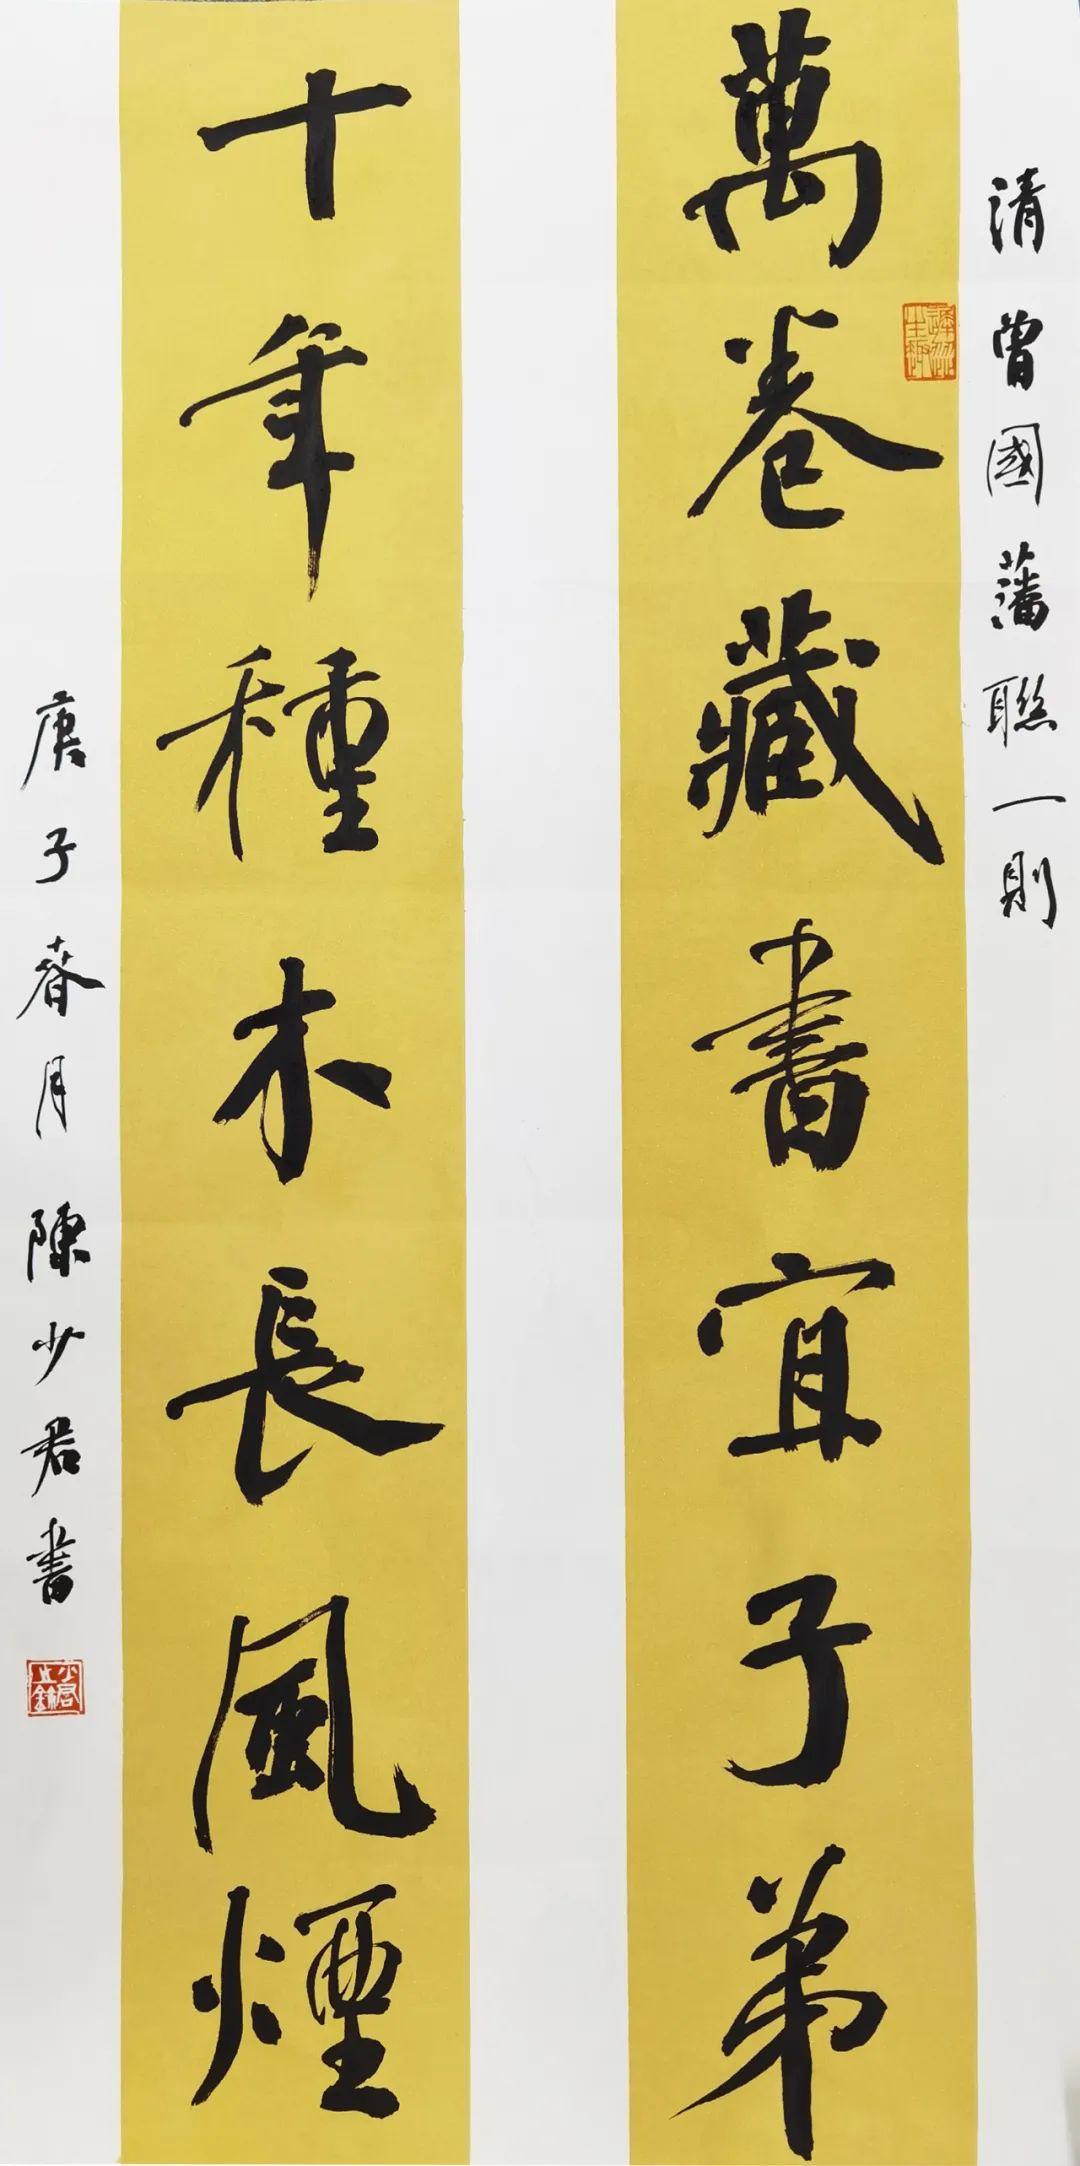 清曾國藩聯一則
萬卷藏書宜子弟
十年種木長風煙
庚子春月陳少君書